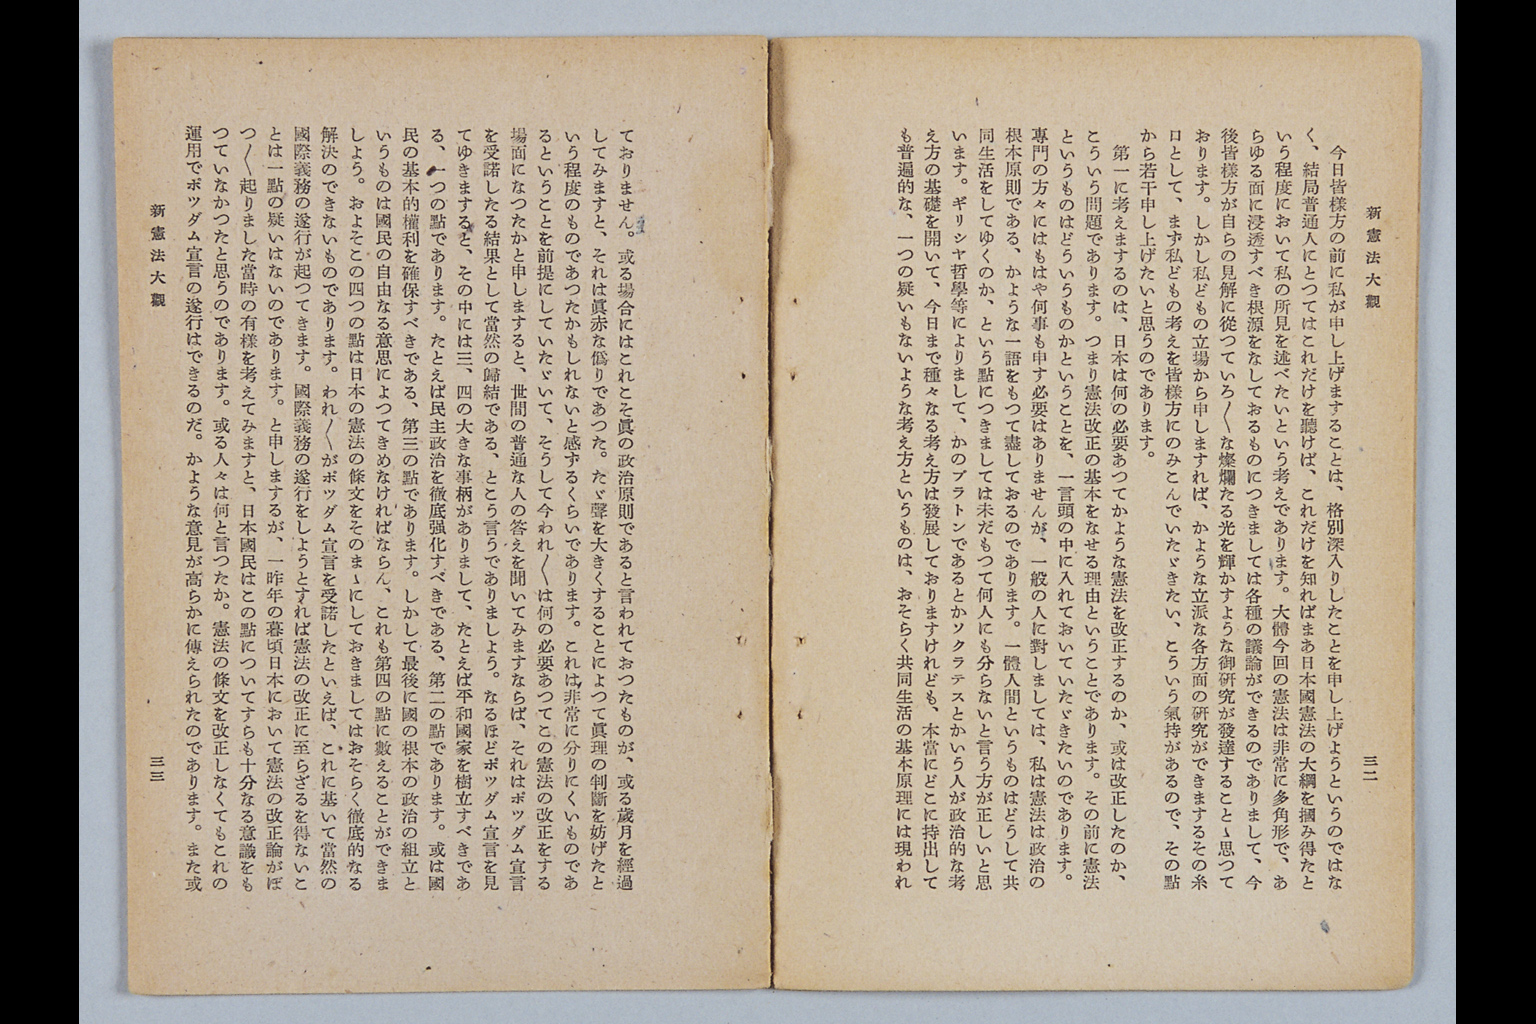 新憲法大觀
三二
今日皆樣方の前に私が申し上げますることは、格別深入りしたことを申し上げようというのではな
く、結局普通人にとつてはこれだけを聽けば、これだけを知ればまあ日本國憲法の大綱を摑み得たと
いう程度において私の所見を述べたいという考えであります。大體今回の憲法は非常に多角形で、あ
らゆる面に浸透すべき根源をなしておるものにつきましては各種の議論ができるのでありまして、今
後皆樣方が自らの見解に從つていろ〳〵な燦爛たる光を輝かすような御研究が發達することゝ思つて
おります。しかし私どもの立場から申しますれば、かような立派な各方面の研究ができまするその糸
口として、まず私どもの考えを皆樣方にのみこんでいたゞきたい、こういう氣持があるので、その點
から若干申し上げたいと思うのであります。
第一に考えまするのは、日本は何の必要あつてかような憲法を改正するのか、或は改正したのか、
こういう問題であります。つまり憲法改正の基本をなせる理由ということであります。その前に憲法
というものはどういうものかということを、一言頭の中に入れておいていたゞきたいのであります。
專門の方々にはもはや何事も申す必要はありませんが、一般の人に對しましては、私は憲法は政治の
根本原則である、かような一語をもつて盡しておるのであります。一體人間というものはどうして共
同生活をしてゆくのか、という點につきましては未だもつて何人にも分らないと言う方が正しいと思
います。ギリシヤ哲學等によりまして、かのプラトンであるとかソクラテスとかいう人が政治的な考
え方の基礎を開いて、今日まで種々なる考え方は發展しておりますけれども、本當にどこに持出して
も普遍的な、一つの疑いもないような考え方というものは、おそらく共同生活の基本原理には現われ
ておりません。或る場合にはこれこそ眞の政治原則であると言われておつたものが、或る歲月を經過
してみますと、それは眞赤な僞りであつた。たゞ聲を大きくすることによつて眞理の判斷を妨げたと
いう程度のものであつたかもしれないと感ずるくらいであります。これは非常に分りにくいものであ
るということを前提にしていたゞいて、そうして今われ〳〵は何の必要あつてこの憲法の改正をする
場面になつたかと申しますると、世間の普通な人の答えを聞いてみますならば、それはポツダム宣言
を受諾したる結果として當然の歸結である、とこう言うでありましよう。なるほどポツダム宣言を見
てゆきますると、その中には三、四の大きな事柄がありまして、たとえば平和國家を樹立すべきであ
る、一つの點であります。たとえば民主政治を徹底强化すべきである、第二の點であります。或は國
民の基本的權利を確保すべきである、第三の點であります。しかして最後に國の根本の政治の組立と
いうものは國民の自由なる意思によつてきめなければならん、これも第四の點に數えることができま
しよう。およそこの四つの點は日本の憲法の條文をそのまゝにしておきましてはおそらく徹底的なる
解決のできないものであります。われ〳〵がポツダム宣言を受諾したといえば、これに基いて當然の
國際義務の遂行が起つてきます。國際義務の遂行をしようとすれば憲法の改正に至らざるを得ないこ
とは一點の疑いはないのであります。と申しまするが、一昨年の暮頃日本において憲法の改正論がぼ
つ〳〵起りました當時の有樣を考えてみますと、日本國民はこの點についてすらも十分なる意識をも
つていなかつたと思うのであります。或る人々は何と言つたか。憲法の條文を改正しなくてもこれの
運用でポツダム宣言の遂行はできるのだ。かような意見が高らかに傳えられたのであります。また或
新憲法大觀
三三